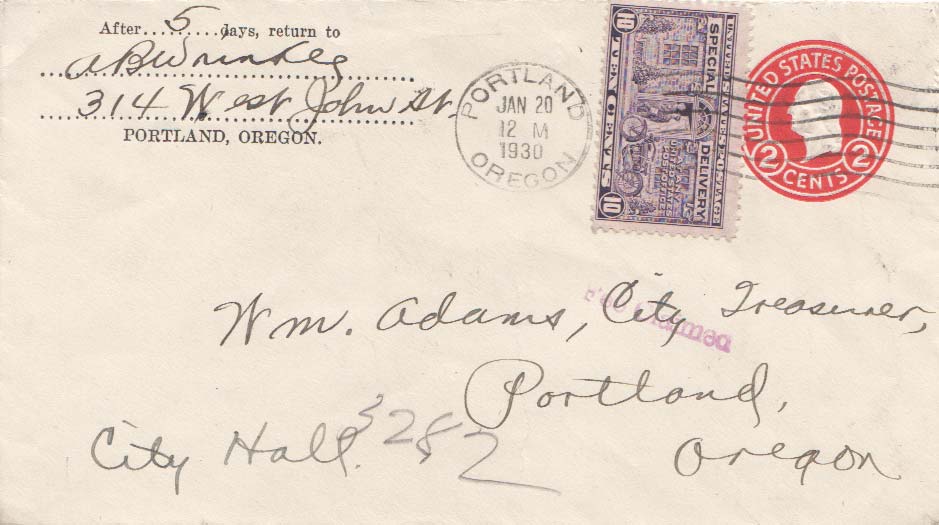 After 5 days, return to
314 West John St.
PORTLAND, OREGON.
PORTLAND
JAN 20
12 M
1930
OREGON
SPECIAL DELIVERY
10
10
UNITED STATES POSTAGE
2 CENTS 2
Wm. Adams, City Treasurer,
Portland,
Oregon
City Hall.
3282